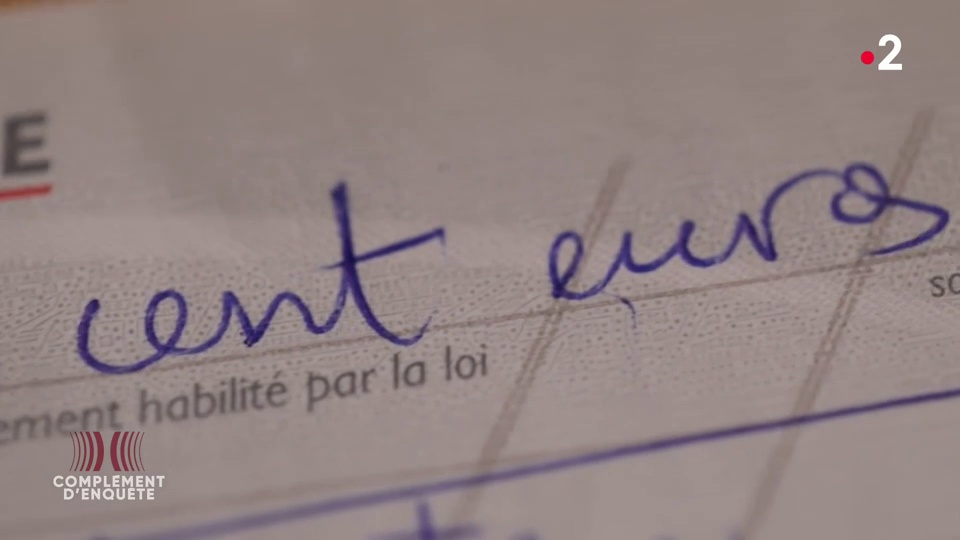 2
E
cent euros
so
ement habilité par la loi
COMPLÉMENT
D'ENQUÊTE